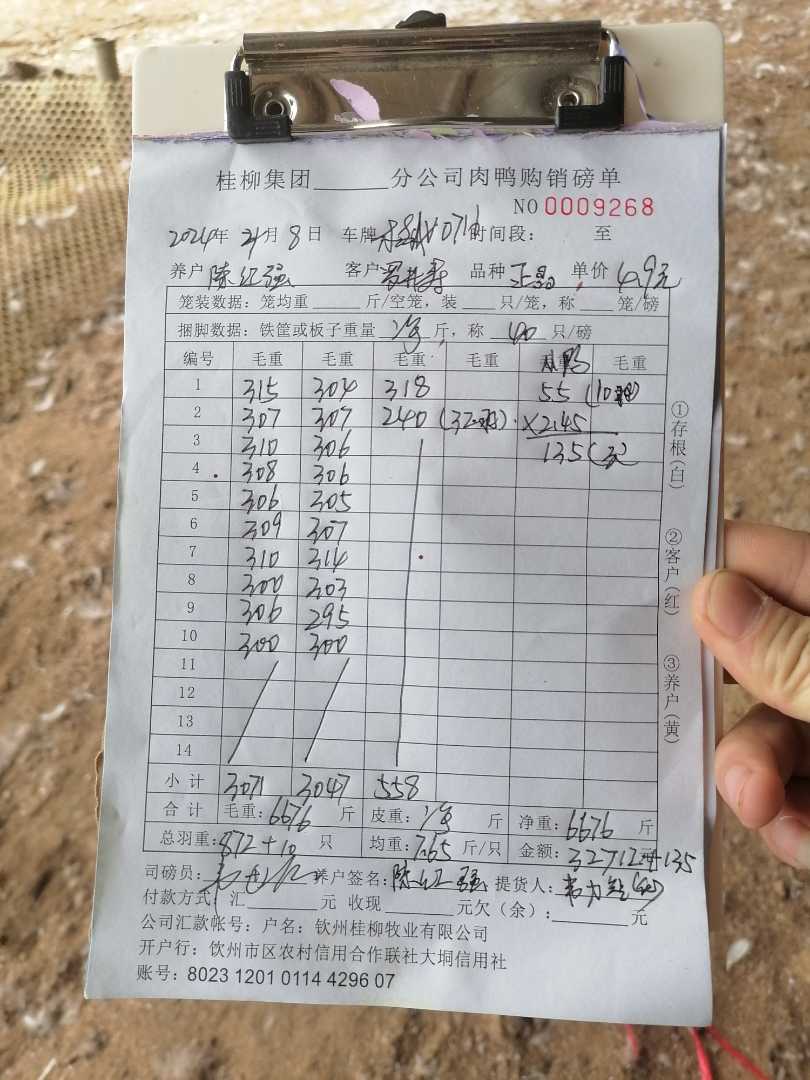 桂柳集团______分公司肉鸭购销磅单
NO 0009268
2024年 月8日 车牌 时间段: 至
养户 陈红强 客户 罗 寿 品种 正晶 单价 4.9元
笼装数据:笼均重____斤/空笼,装___只/笼,称___笼/磅
捆脚数据:铁筐或板子重量 净 斤,称 40 只/磅
编号 毛重 毛重 毛重 毛重 鸭 毛重
1 315 304 318 55 (10 )
2 307 307 240 (32 ) ×2.45
3 310 306 135 (元)
4 308 306
5 306 305
6 309 307
7 310 314
8 300 303
9 306 295
10 300 300
11
12
13
14
小计 3071 3047 558
合计 毛重:6676 斤 皮重:净 斤 净重:6676 斤
总羽重:872+10 只 均重:7.65 斤/只 金额:32712 元+135
司磅员: 养户签名:陈红强 提货人:韦力
付款方式:汇______元 收现______元欠(余):______元
公司汇款帐号:户名:钦州桂柳牧业有限公司
开户行:钦州市区农村信用合作联社大垌信用社
账号:8023 1201 0114 4296 07
①存根(白)
②客户(红)
③养户(黄)